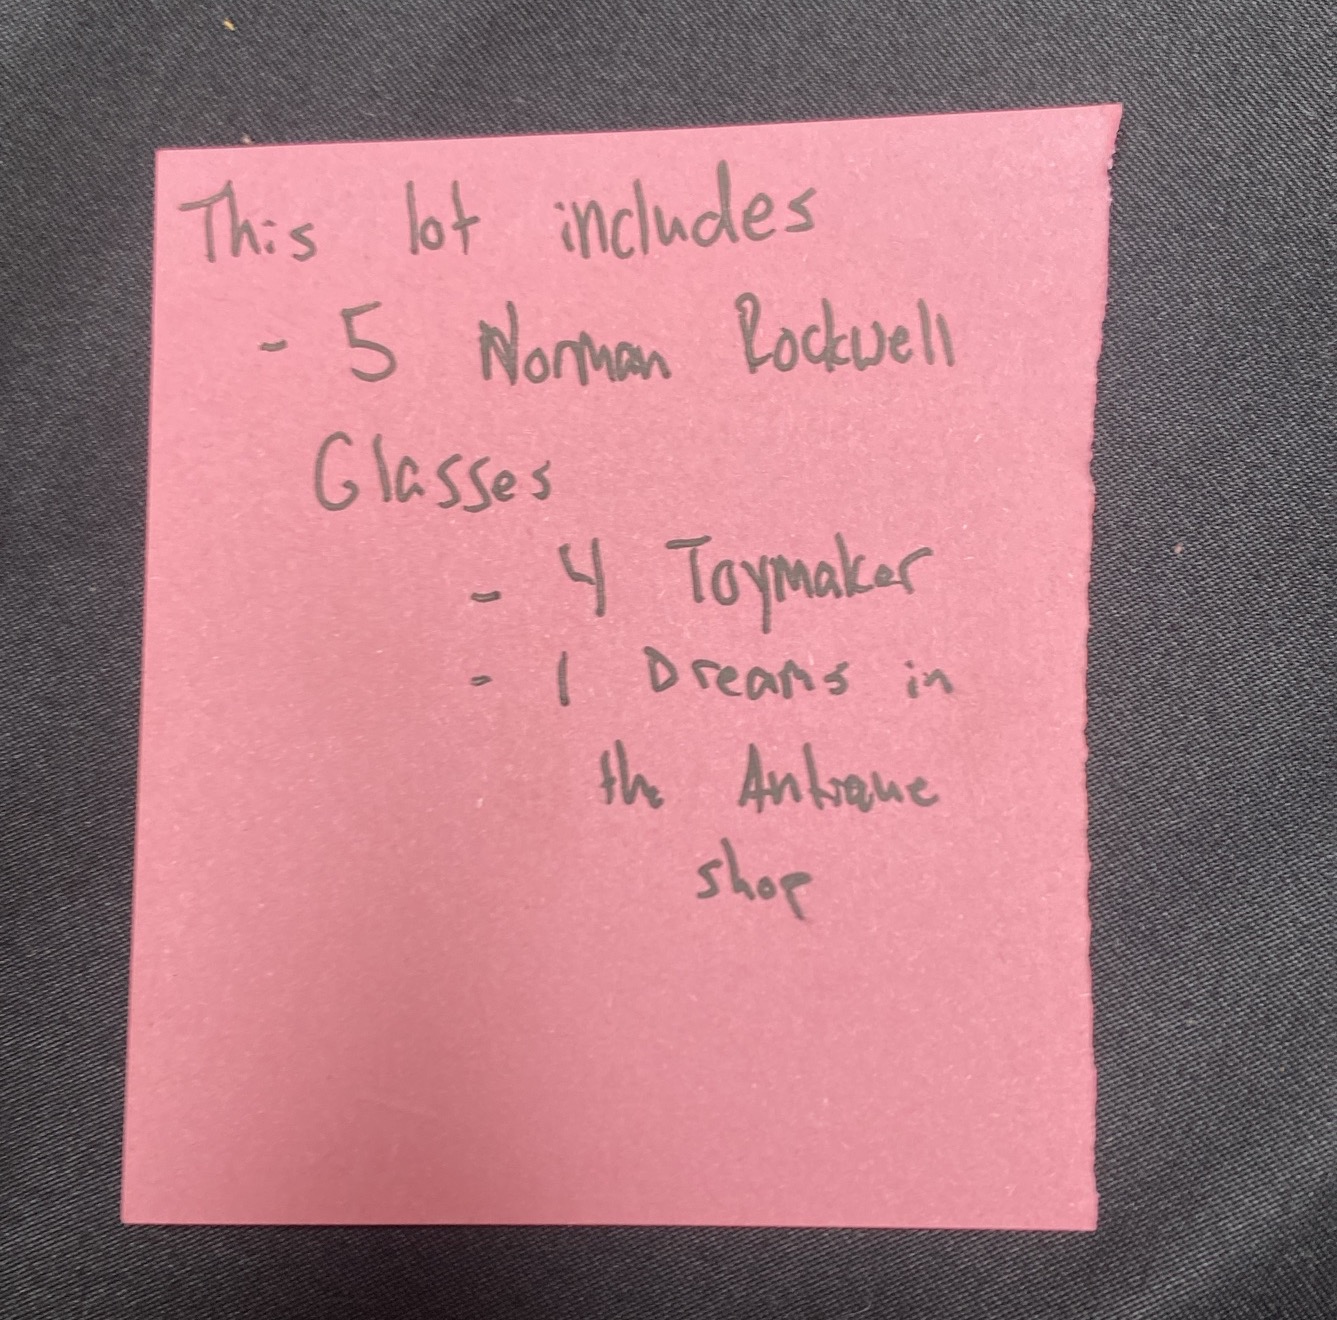 This lot includes
- 5 Norman Rockwell
Glasses
- 4 Toymaker
- 1 Dreams in
the Antique
shop